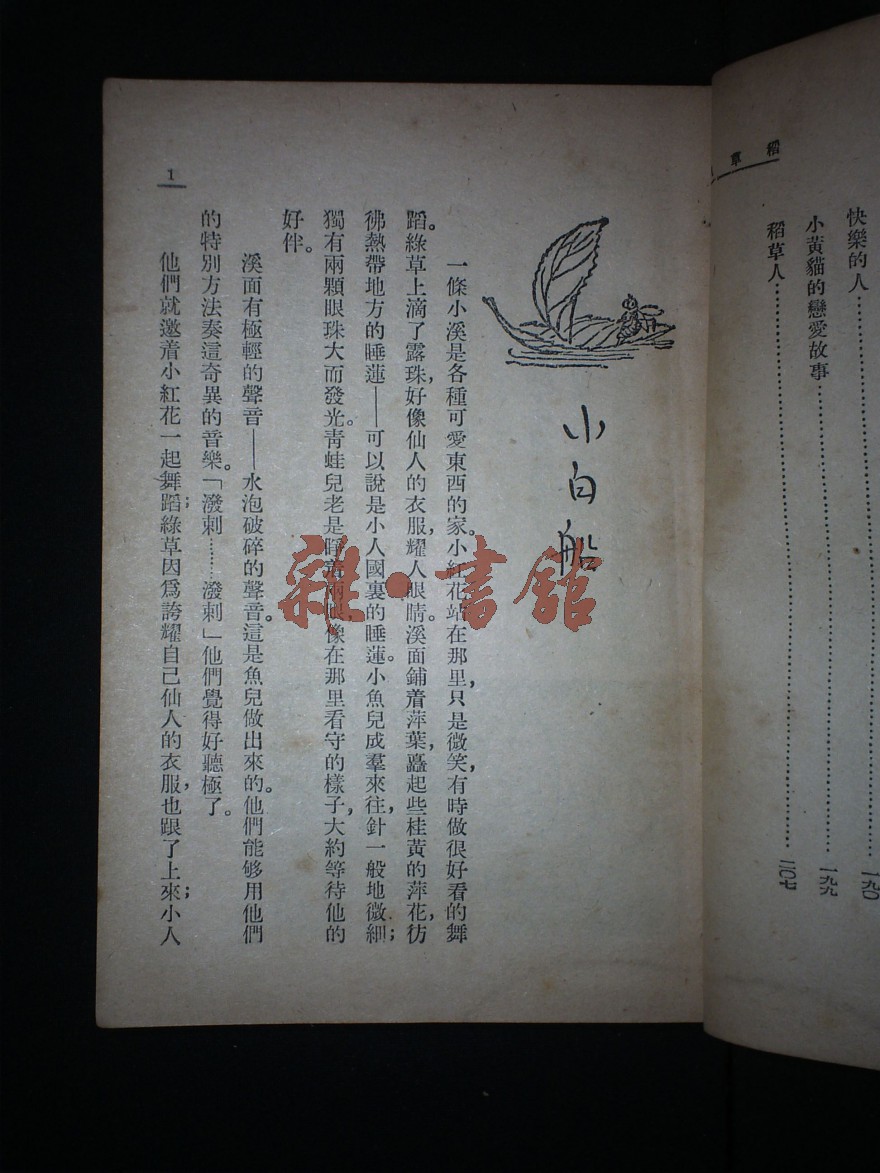 稻草
快樂的人……一九〇
小黃貓的戀愛故事……一九九
稻草人……二〇七
小白船
一條小溪是各種可愛東西的家。小紅花站在那里，只是微笑，有時做很好看的舞
蹈。綠草上滴了露珠，好像仙人的衣服，耀人眼睛。溪面鋪着萍葉，矗起些桂黃的萍花，彷
彿熱帶地方的睡蓮——可以說是小人國裏的睡蓮。小魚兒成羣來往，針一般地微細；
獨有兩顆眼珠大而發光。青蛙兒老是睜着兩眼，像在那里看守的樣子，大約等待他的
好伴。
溪面有極輕的聲音——水泡破碎的聲音。這是魚兒做出來的。他們能够用他們
的特別方法奏這奇異的音樂。「潑剌……潑剌」他們覺得好聽極了。
他們就邀着小紅花一起舞蹈；綠草因爲誇耀自己仙人的衣服，也跟了上來；小人
1
雜·書館